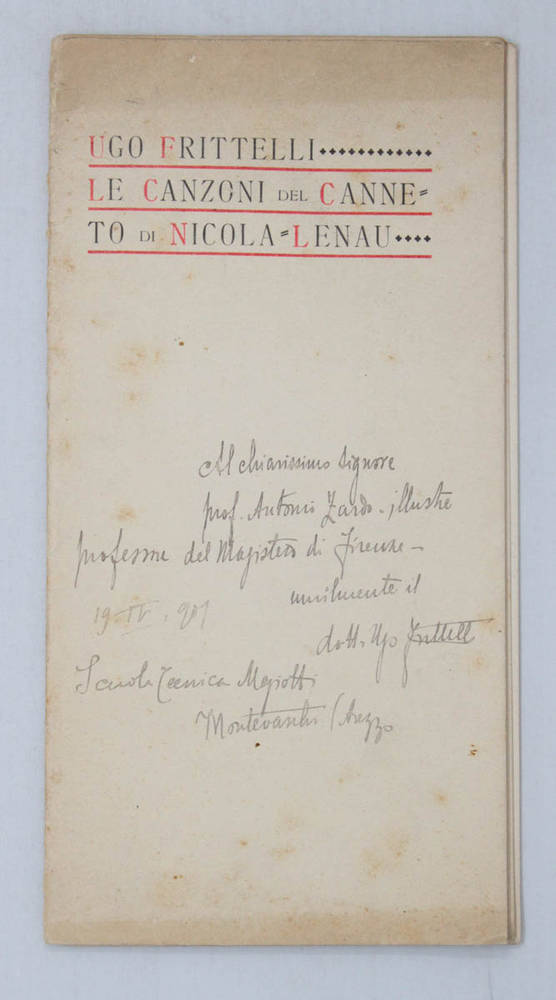 UGO FRITTELLI
LE CANZONI DEL CANNE=
TO DI NICOLA=LENAU
Al chiarissimo Signore
prof. Antonio Zardo - illustre
professore del Magistero di Firenze -
umilmente il
dott. Ugo Frittelli
19-IV-901
Scuola Tecnica Magiotti
Montevarchi (Arezzo